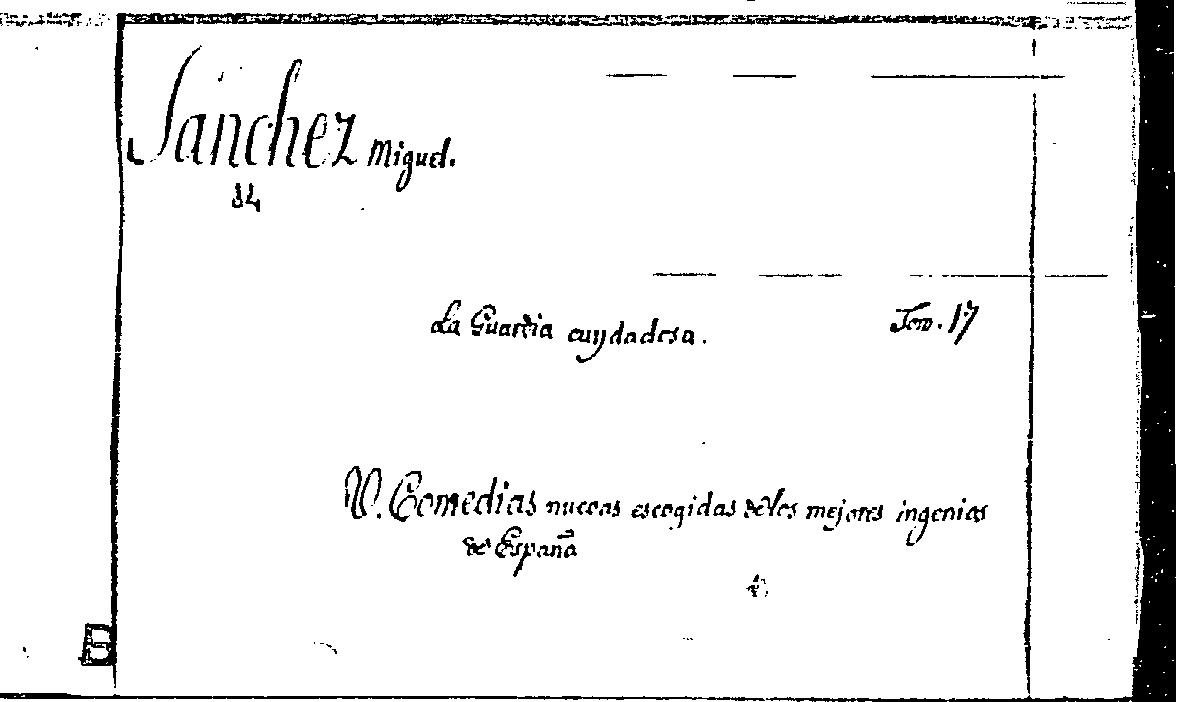 Sanchez Miguel.
84
La Guardia cuydadosa. Tom. 17
V. Comedias nuevas escogidas de los mejores ingenios
de España
4.
B